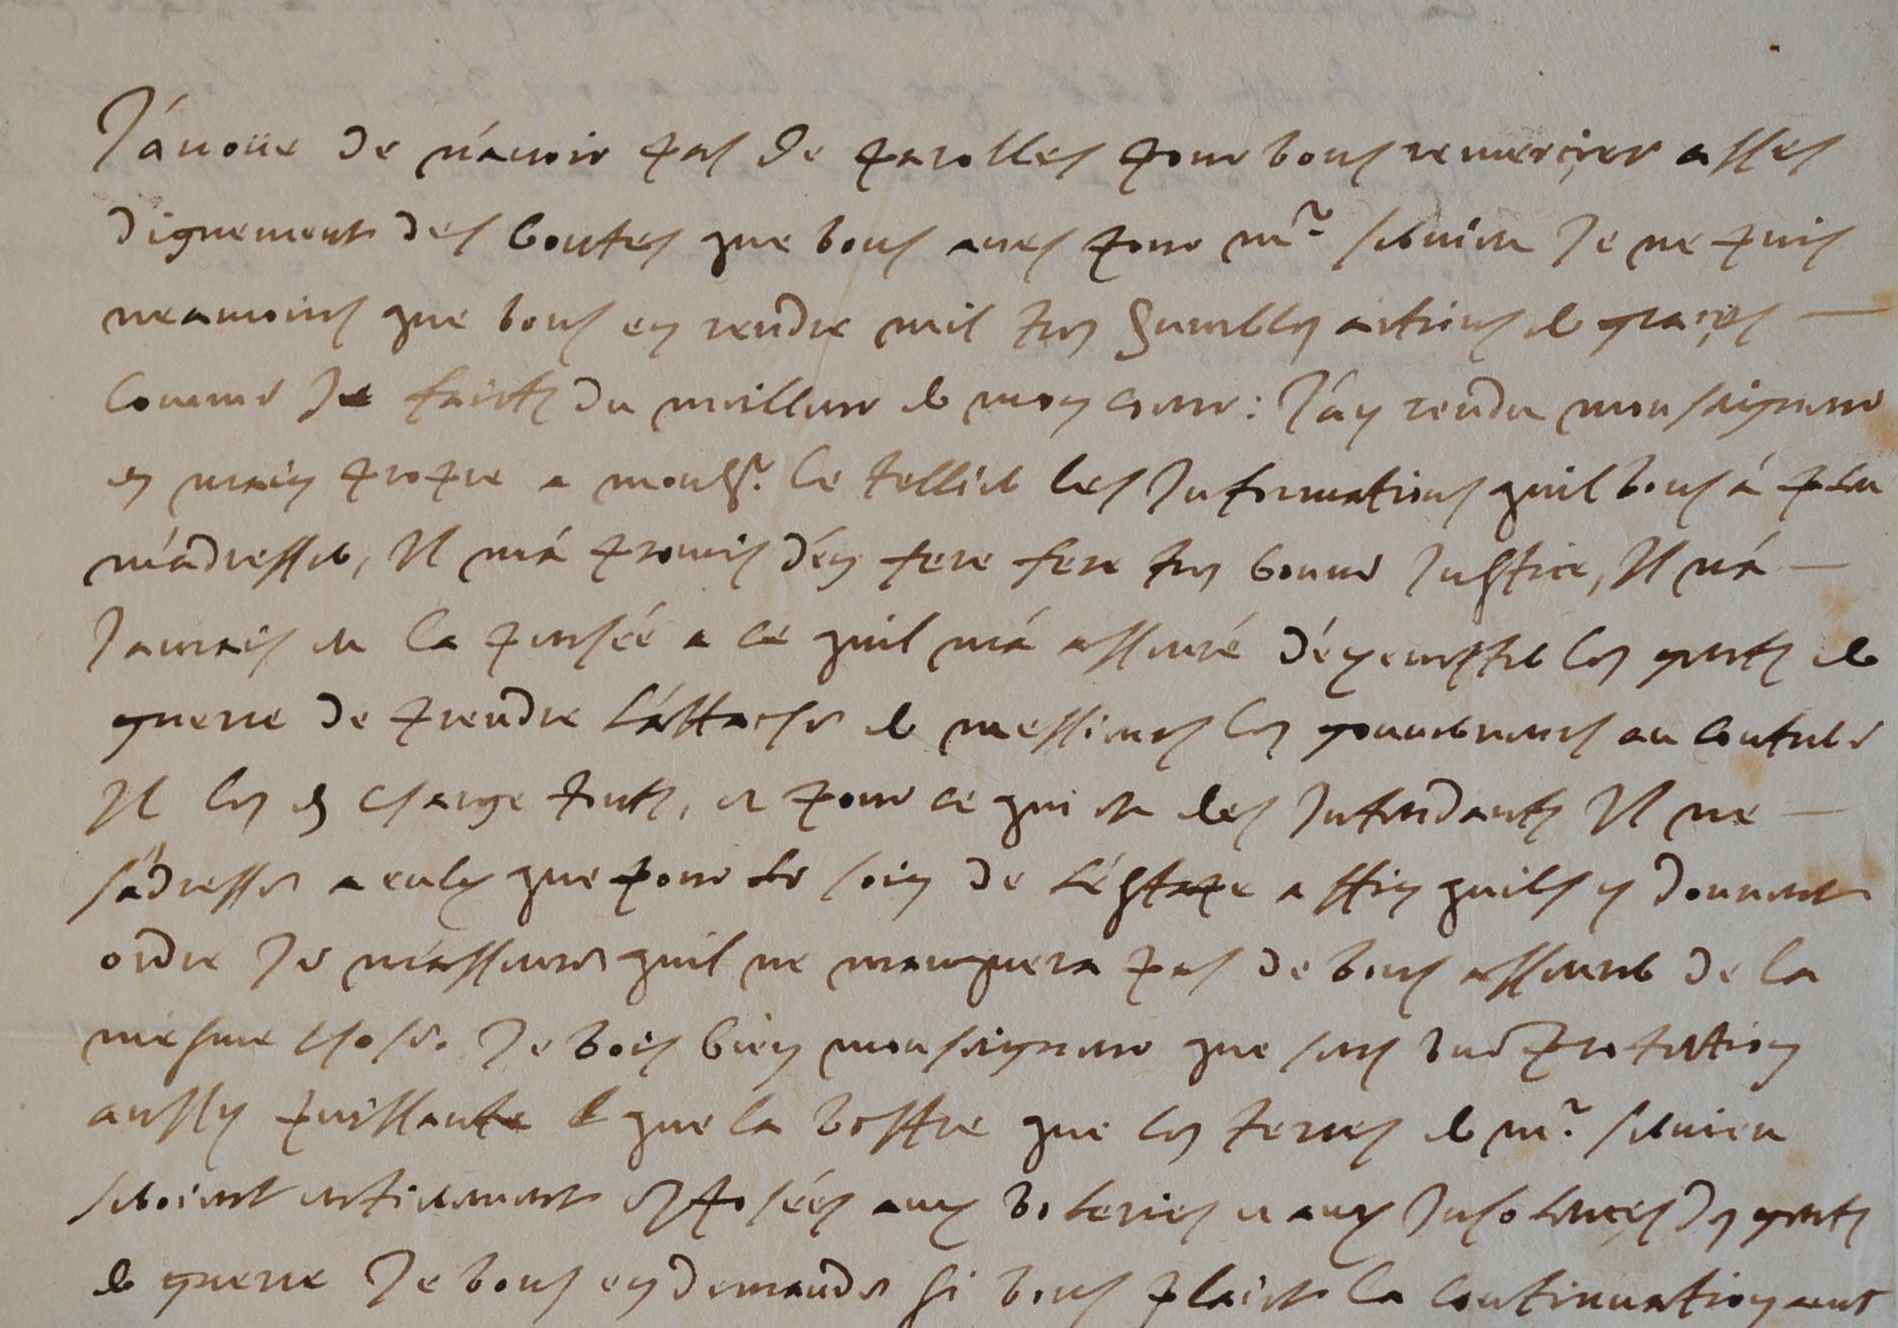 J'auoüe de n'auoir pas de parolles pour vous remerçier asses
dignement des bontes que vous aues pour mr. seruien Je ne puis
neamoins que vous en rendre mil tres humbles actions de graçes
comme Je faicts du meilleur de mon cœur : J'ay rendu monseigneur
en main propre a monsr. le tellier les Informations quil vous à plu
m'adresser, Il m'á promis d'én fere fere tres bonne Justice, Il n'á
Jamais eu la pensée a ce quil m'á asseuré d'éxempter les gents de
guerre de prendre l'áttache de messieurs les gouuerneurs au contrere
Il les en charge touts, et pour ce qui est des Intendants Il ne
s'ádresse a eulx que pour le soin de l'éstape affin quils y donnent
ordre Je m'ásseure quil ne manquera pas de vous asseurer de la
mesme chose. Je vois bien monseigneur que sens vne protection
aussy puissante que la vostre que les terres de mr. seruien
seroient entierement exposées aux voleries et aux Insolençes des gents
de guerre Je vous en demande si vous plaict la continuation auec